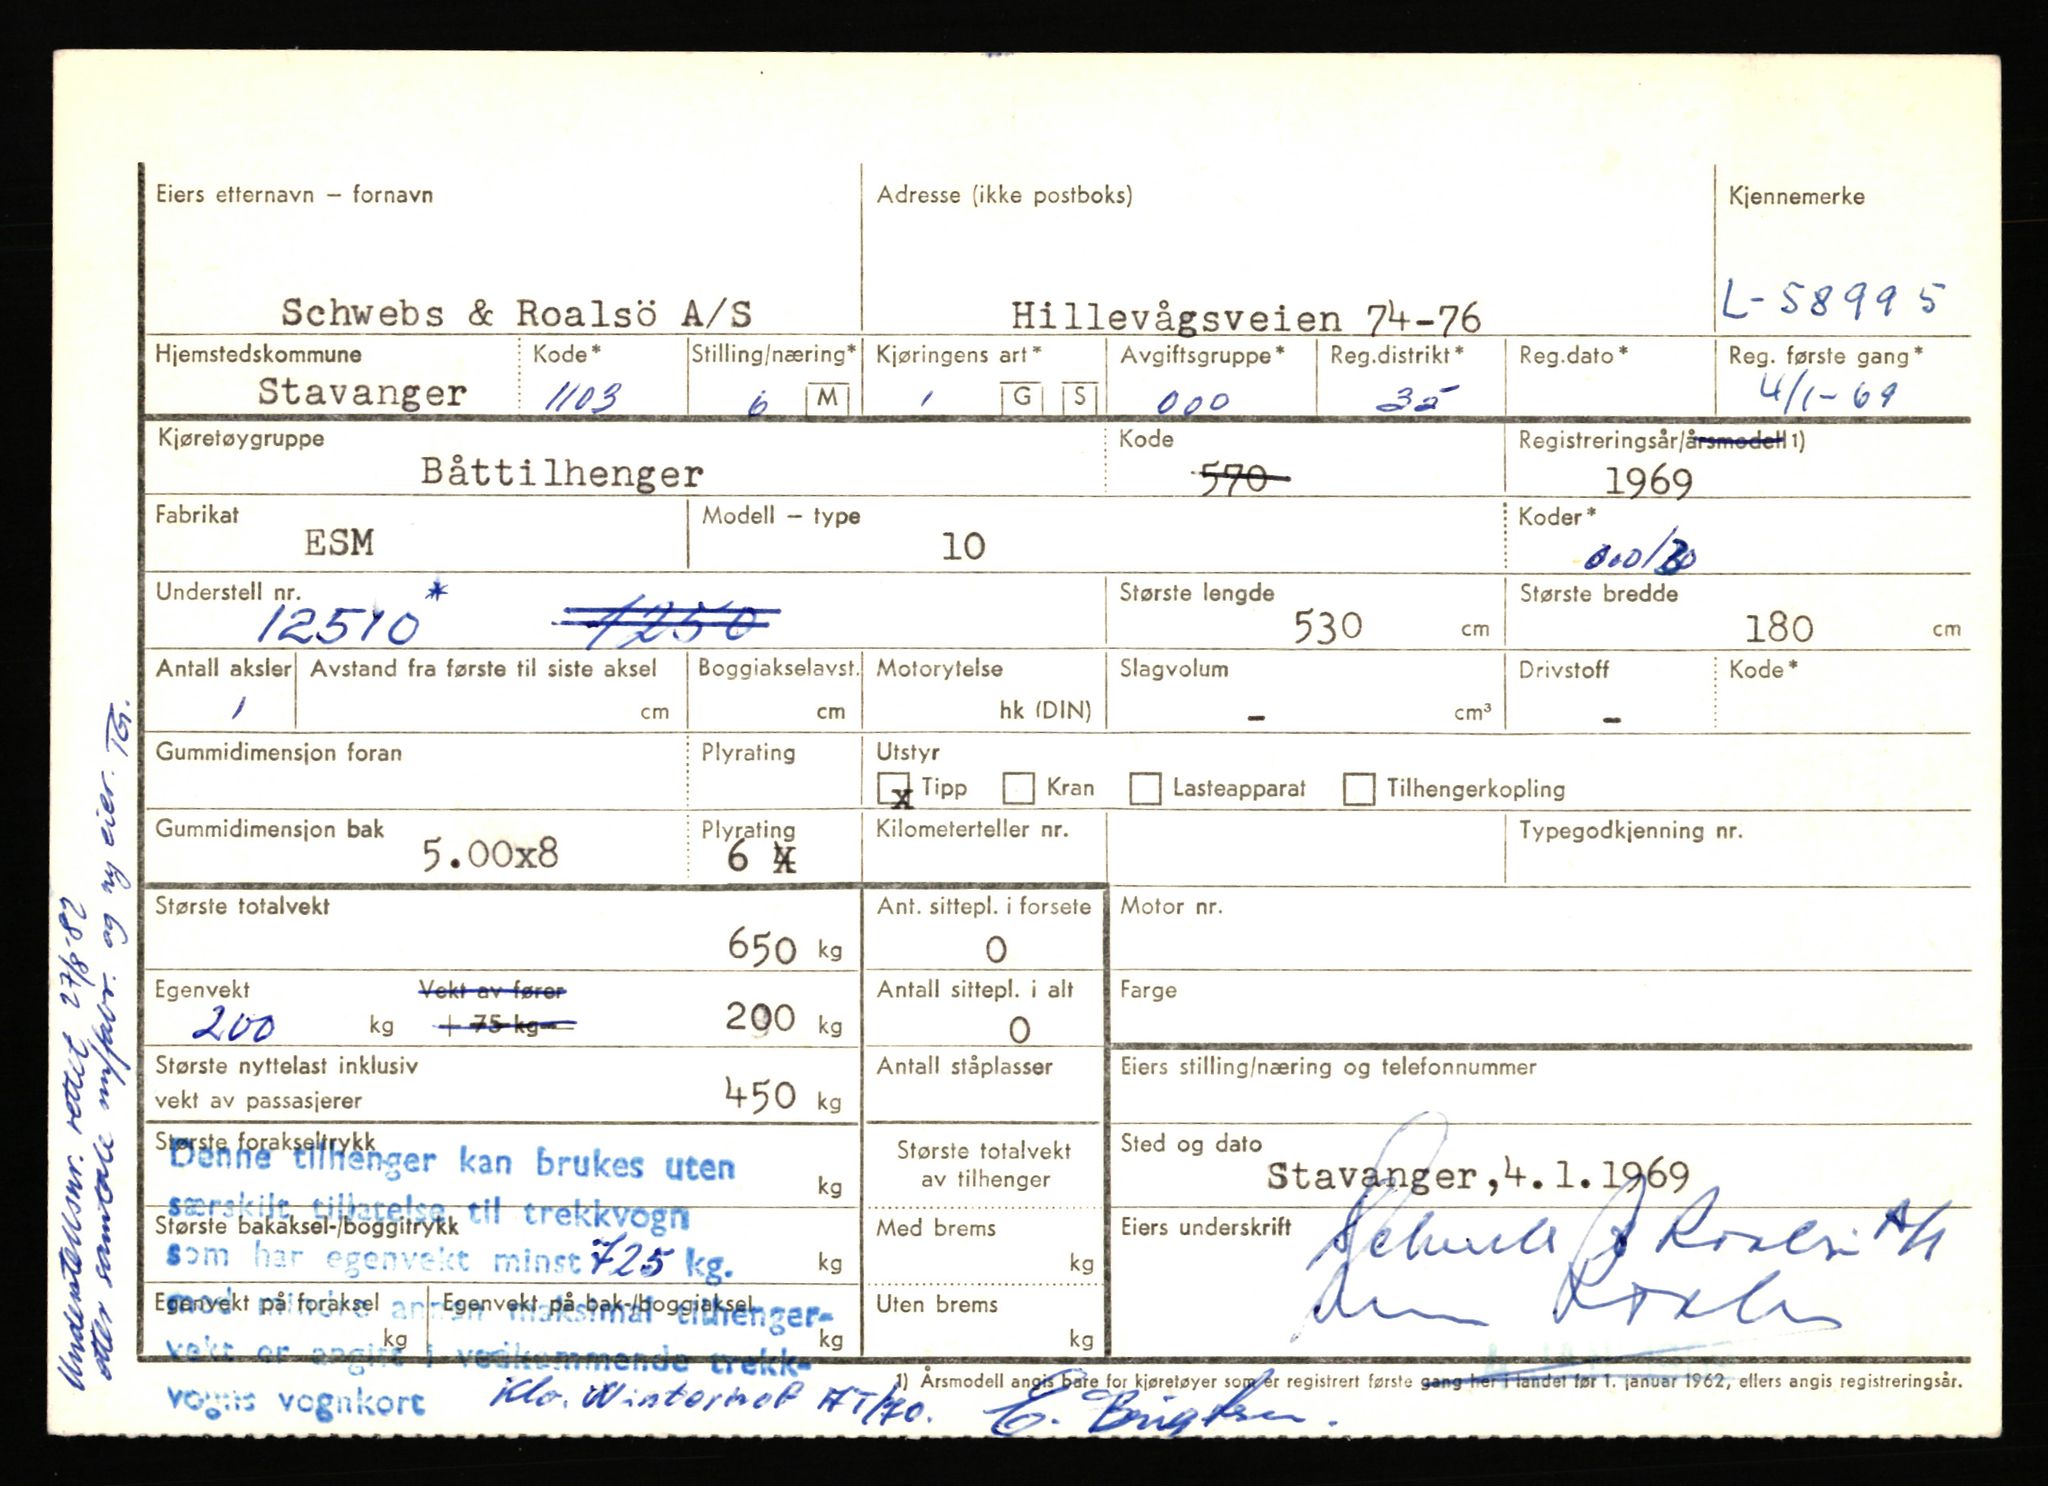 Eiers etternavn – fornavn
Adresse (ikke postboks)
Kjennemerke
Schwebs & Roalsö A/S
Hillevågsveien 74-76
L-58995
Hjemstedskommune
Kode*
Stilling/næring*
Kjøringens art*
Avgiftsgruppe*
Reg.distrikt*
Reg.dato*
Reg. første gang*
Stavanger
1103
6 M
1 G S
000
35
4/1-69
Kjøretøygruppe
Kode
Registreringsår/årsmodell 1)
Båttilhenger
570
1969
Fabrikat
Modell – type
Koder*
ESM
10
Understell nr.
Største lengde
Største bredde
12510* 1250
530 cm
180 cm
Antall aksler
Avstand fra første til siste aksel
Boggiakselavst.
Motorytelse
Slagvolum
Drivstoff
Kode*
1
cm
cm
hk (DIN)
– cm³
–
Gummidimensjon foran
Plyrating
Utstyr
x Tipp
Kran
Lasteapparat
Tilhengerkopling
Gummidimensjon bak
Plyrating
Kilometerteller nr.
Typegodkjenning nr.
5.00x8
6 4
Største totalvekt
Ant. sittepl. i forsete
Motor nr.
650 kg
0
Egenvekt
Vekt av fører
Antall sittepl. i alt
Farge
200 kg
+ 75 kg =
200 kg
0
Største nyttelast inklusiv
vekt av passasjerer
450 kg
Antall ståplasser
Eiers stilling/næring og telefonnummer
Største forakseltrykk
kg
Største totalvekt
av tilhenger
Sted og dato
Stavanger,4.1.1969
Denne tilhenger kan brukes uten
særskilt tillatelse til trekkvogn
som har egenvekt minst 725 kg.
med mindre annen maksimal tilhenger-
vekt er angitt i vedkommende trekk-
vogns vognkort
Største bakaksel-/boggitrykk
kg
Med brems
kg
Eiers underskrift
Egenvekt på foraksel
kg
Egenvekt på bak-/boggiaksel
kg
Uten brems
kg
1) Årsmodell angis bare for kjøretøyer som er registrert første gang her i landet før 1. januar 1962, ellers angis registreringsår.
Understellsnr. rettet 27/8-82
etter samtale m/fabr. og ny eier.